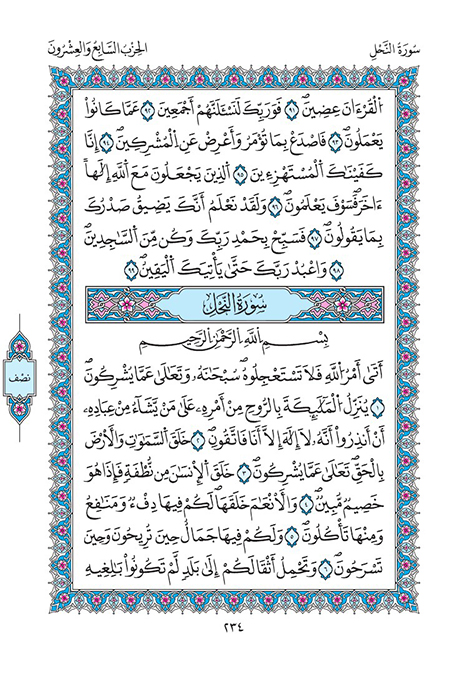 سُورَةُ النَّحْلِ
الحِزْبُ السَّابِعُ وَالعِشْرُونَ
اَلْقُرْءَانَ عِضِينَۖ ٩١ فَوَرَبِّكَ لَنَسْـَٔلَنَّهُمُۥٓ أَجْمَعِينَ ٩٢ عَمَّا كَانُواْ
يَعْمَلُونَۖ ٩٣ فَاصْدَعْ بِمَا تُؤْمَرُ وَأَعْرِضْ عَنِ اِلْمُشْرِكِينَۖ ٩٤ إِنَّا
كَفَيْنَٰكَ اَلْمُسْتَهْزِءِينَ ٩٥ اَلذِينَ يَجْعَلُونَ مَعَ اَللَّهِ إِلَٰهاً
ـاخَرَۖ فَسَوْفَ يَعْلَمُونَۖ ٩٦ وَلَقَدْ نَعْلَمُ أَنَّكَ يَضِيقُ صَدْرُكَ
بِمَا يَقُولُونَۖ ٩٧ فَسَبِّحْ بِحَمْدِ رَبِّكَ وَكُن مِّنَ اَلسَّٰجِدِينَۖ
٩٨ وَاعْبُدْ رَبَّكَ حَتَّىٰ يَأْتِيَكَ اَلْيَقِينُۖ ٩٩
سُورَةُ النَّحْلِ
بِسْمِ اِللَّهِ اِلرَّحْمَٰنِ اِلرَّحِيمِ
أَتَىٰٓ أَمْرُ اُللَّهِ فَلَا تَسْتَعْجِلُوهُۖ سُبْحَٰنَهُۥ وَتَعَٰلَىٰ عَمَّا يُشْرِكُونَۖ
١ يُنَزِّلُ اُلْمَلَٰٓئِكَةَ بِالرُّوحِ مِنْ أَمْرِهِۦ عَلَىٰ مَنْ يَّشَآءُ مِنْ عِبَادِهِۦٓ
أَنَ اَنذِرُوٓاْ أَنَّهُۥ لَآ إِلَٰهَ إِلَّآ أَنَا فَاتَّقُونِۖ ٢ خَلَقَ اَلسَّمَٰوَٰتِ وَالَارْضَ
بِالْحَقِّۖ تَعَٰلَىٰ عَمَّا يُشْرِكُونَۖ ٣ خَلَقَ اَلِانسَٰنَ مِن نُّطْفَةٍ فَإِذَا هُوَ
خَصِيمٌ مُّبِينٌۖ ٤ وَالَانْعَٰمَ خَلَقَهَاۖ لَكُمْ فِيهَا دِفْءٌ وَمَنَٰفِعُ
وَمِنْهَا تَأْكُلُونَۖ ٥ وَلَكُمْ فِيهَا جَمَالٌ حِينَ تُرِيحُونَ وَحِينَ
تَسْرَحُونَۖ ٦ وَتَحْمِلُ أَثْقَالَكُمُۥٓ إِلَىٰ بَلَدٍ لَّمْ تَكُونُواْ بَٰلِغِيهِ
نصْف
٢٣٤